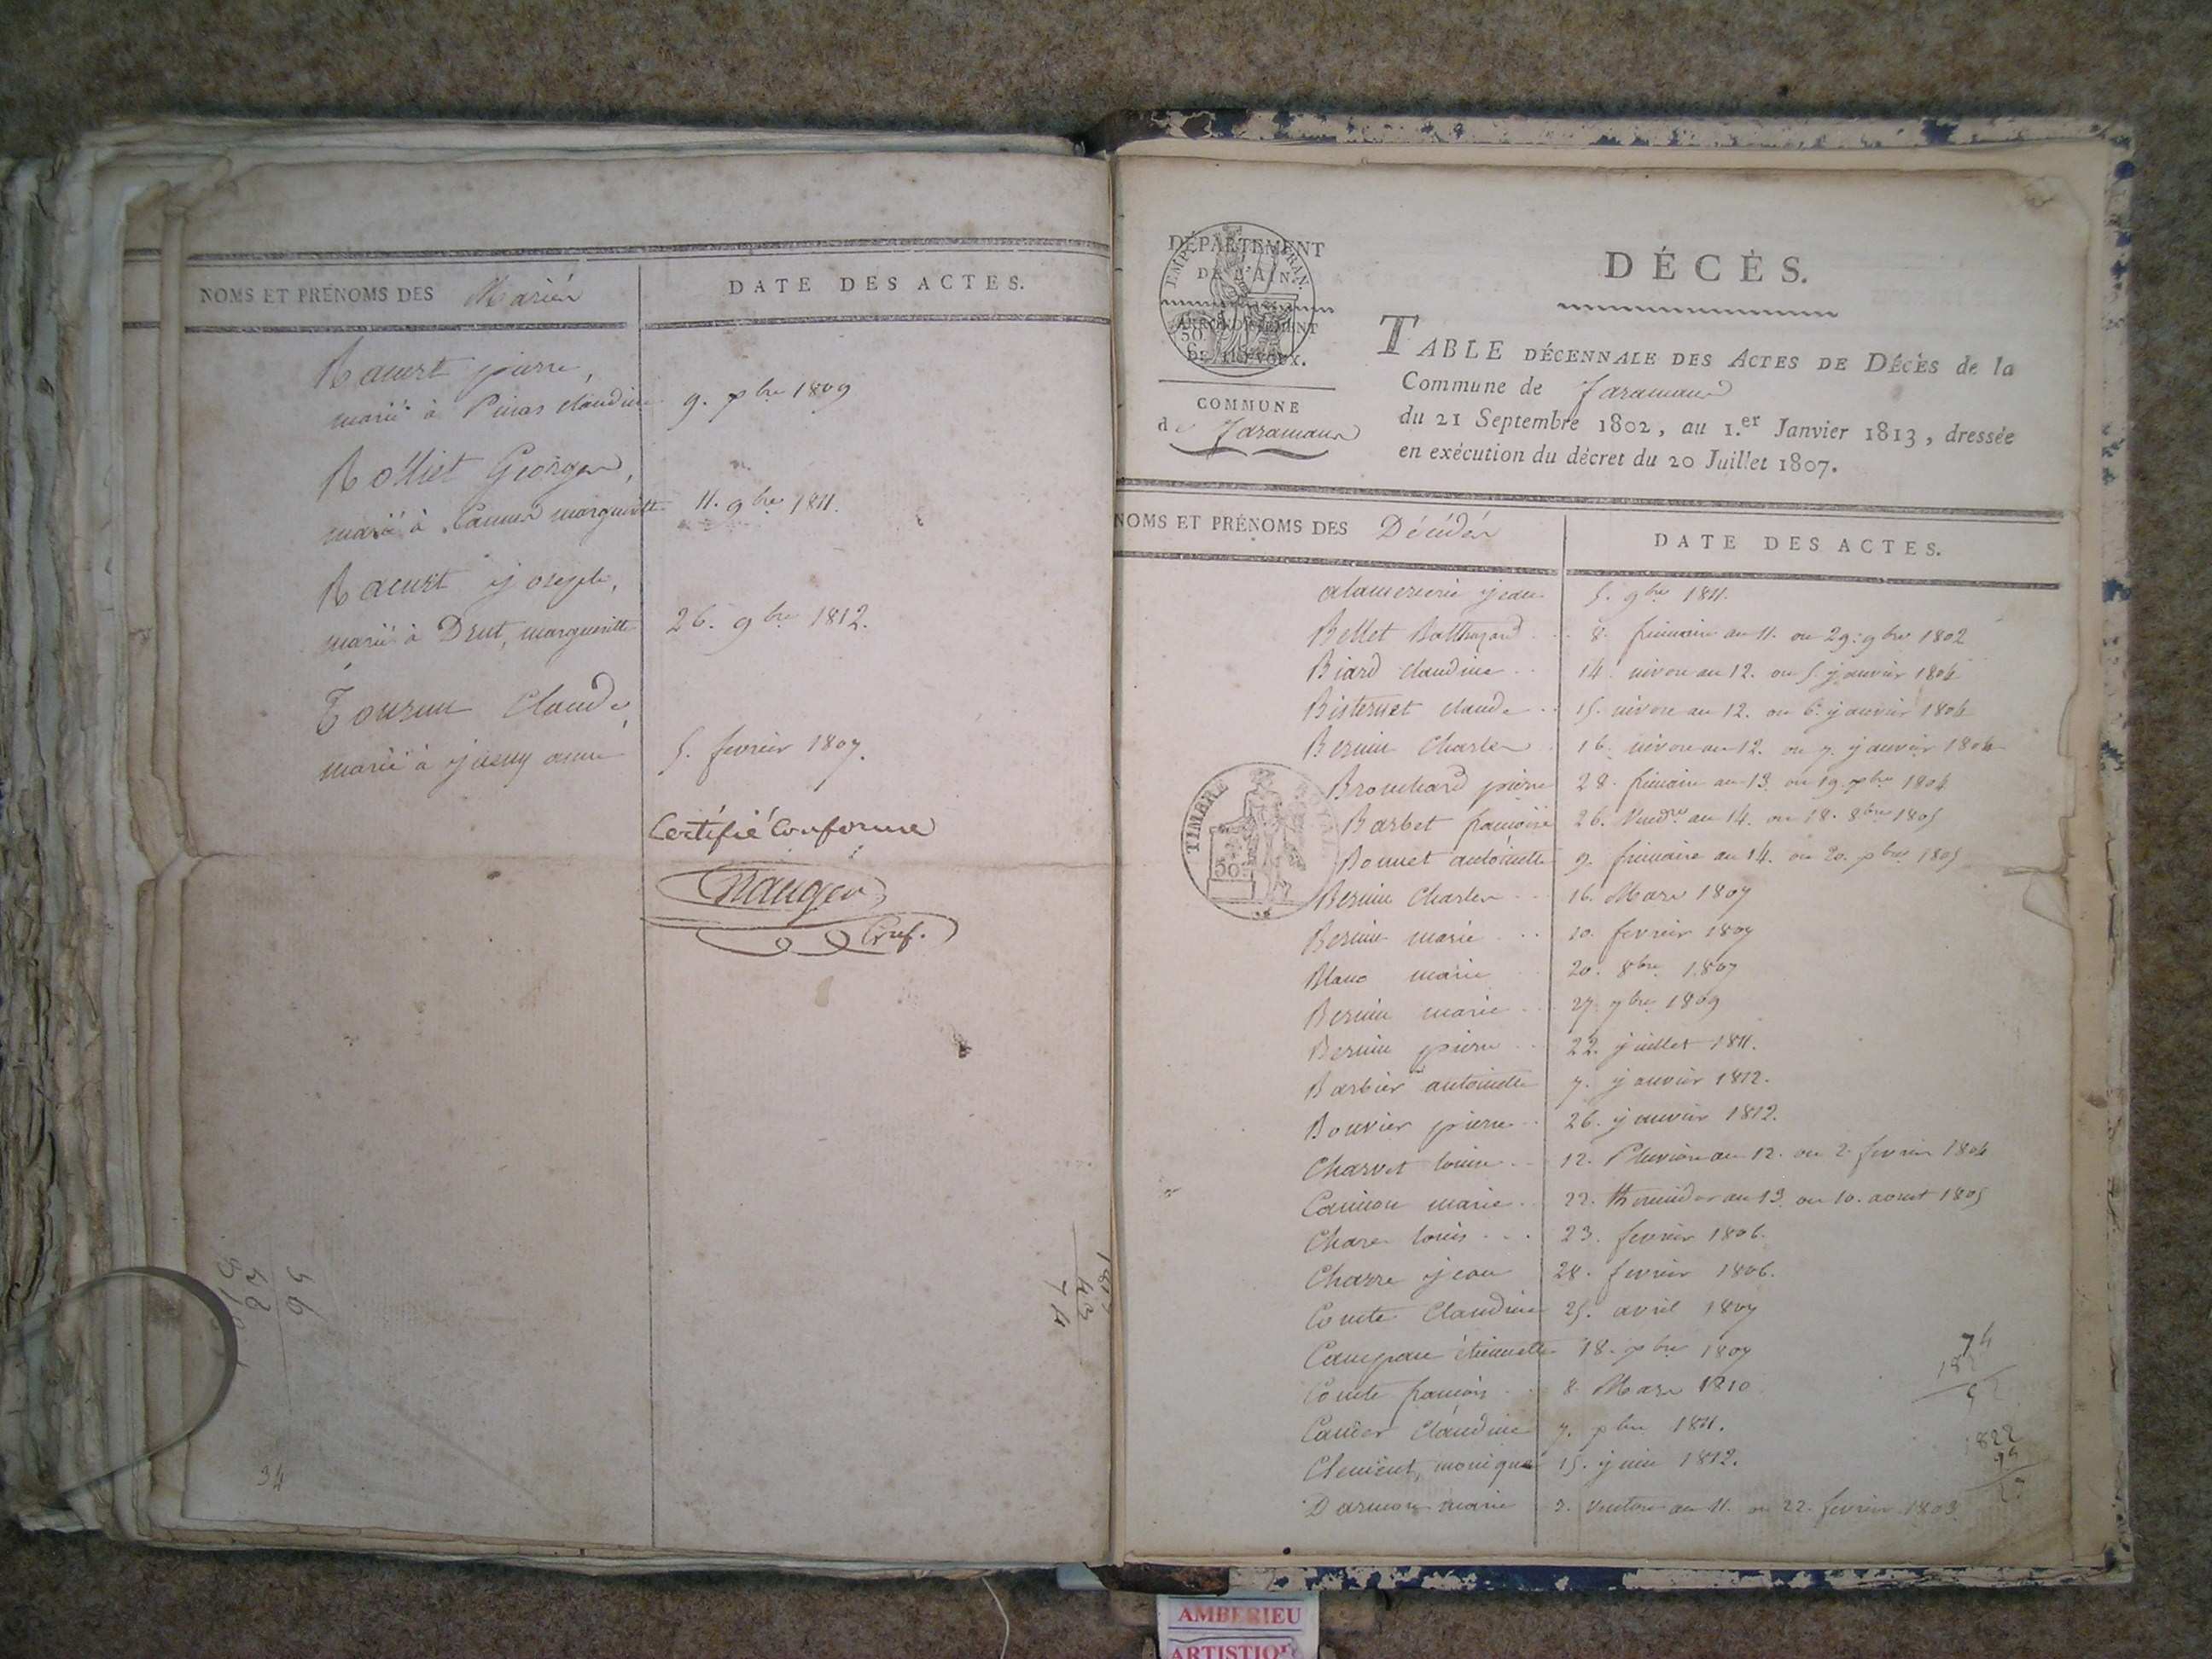 NOMS ET PRÉNOMS DES Mariés
DATE DES ACTES.
Racurt pierre,
marié à Piras claudine 9. xbre 1809
Rolliet Georges,
marié à Camus margueritte 11. 9bre 1811.
Racurt joseph,
marié à Drut, margueritte 26. 9bre 1812.
claude,
marié à anne 5. fevrier 1807.
Certifié Conforme
Gref.
34
DÉPARTEMENT
DE L'AIN.
ARRONDISSEMENT
DE TRÉVOUX.
COMMUNE
de Faramans
DÉCÈS.
TABLE DÉCENNALE DES ACTES DE DÉCÈS de la
Commune de Faramans
du 21 Septembre 1802, au 1.er Janvier 1813, dressée
en exécution du décret du 20 Juillet 1807.
NOMS ET PRÉNOMS DES Décédés
DATE DES ACTES.
jean 5. 9bre 1811.
Bellet Balthazard 8. frimaire an 11. ou 29. 9bre 1802
Biard claudine 14. nivose an 12. ou 5. janvier 1804
Bisternet claude 15. nivose an 12. ou 6. janvier 1804
Bernin Charles 16. nivose an 12. ou 7. janvier 1804
Brouchard pierre 28. frimaire an 13. ou 19. xbre 1804
Barbet françoise 26. Vendre an 14. ou 18. 8bre 1805
Bonnet antoinette 9. frimaire an 14. ou 20. xbre 1805
Bernin Charles 16. Mars 1807
Bernin marie 10. fevrier 1807
Blanc marie 20. 8bre 1807
Bernin marie 27. 7bre 1809
Bernin pierre 22. juillet 1811.
Barbier antoinette 7. janvier 1812.
Bouvier pierre 26. janvier 1812.
Charvet louise 12. Pluviose an 12. ou 2. fevrier 1804
Camion marie 22. thermidor an 13. ou 10. aout 1805
Chare louis 23. fevrier 1806.
Charre jean 28. fevrier 1806.
Comte Claudine 25. avril 1807
Campan étiennette 18. xbre 1807
Comte françois 8. Mars 1810
Claudine 7. xbre 1811.
Clement, monique 15. juin 1812.
Darmon marie 3. ventose an 11. ou 22. fevrier 1803
TIMBRE ROYAL
50
74
1822
AMBERIEU